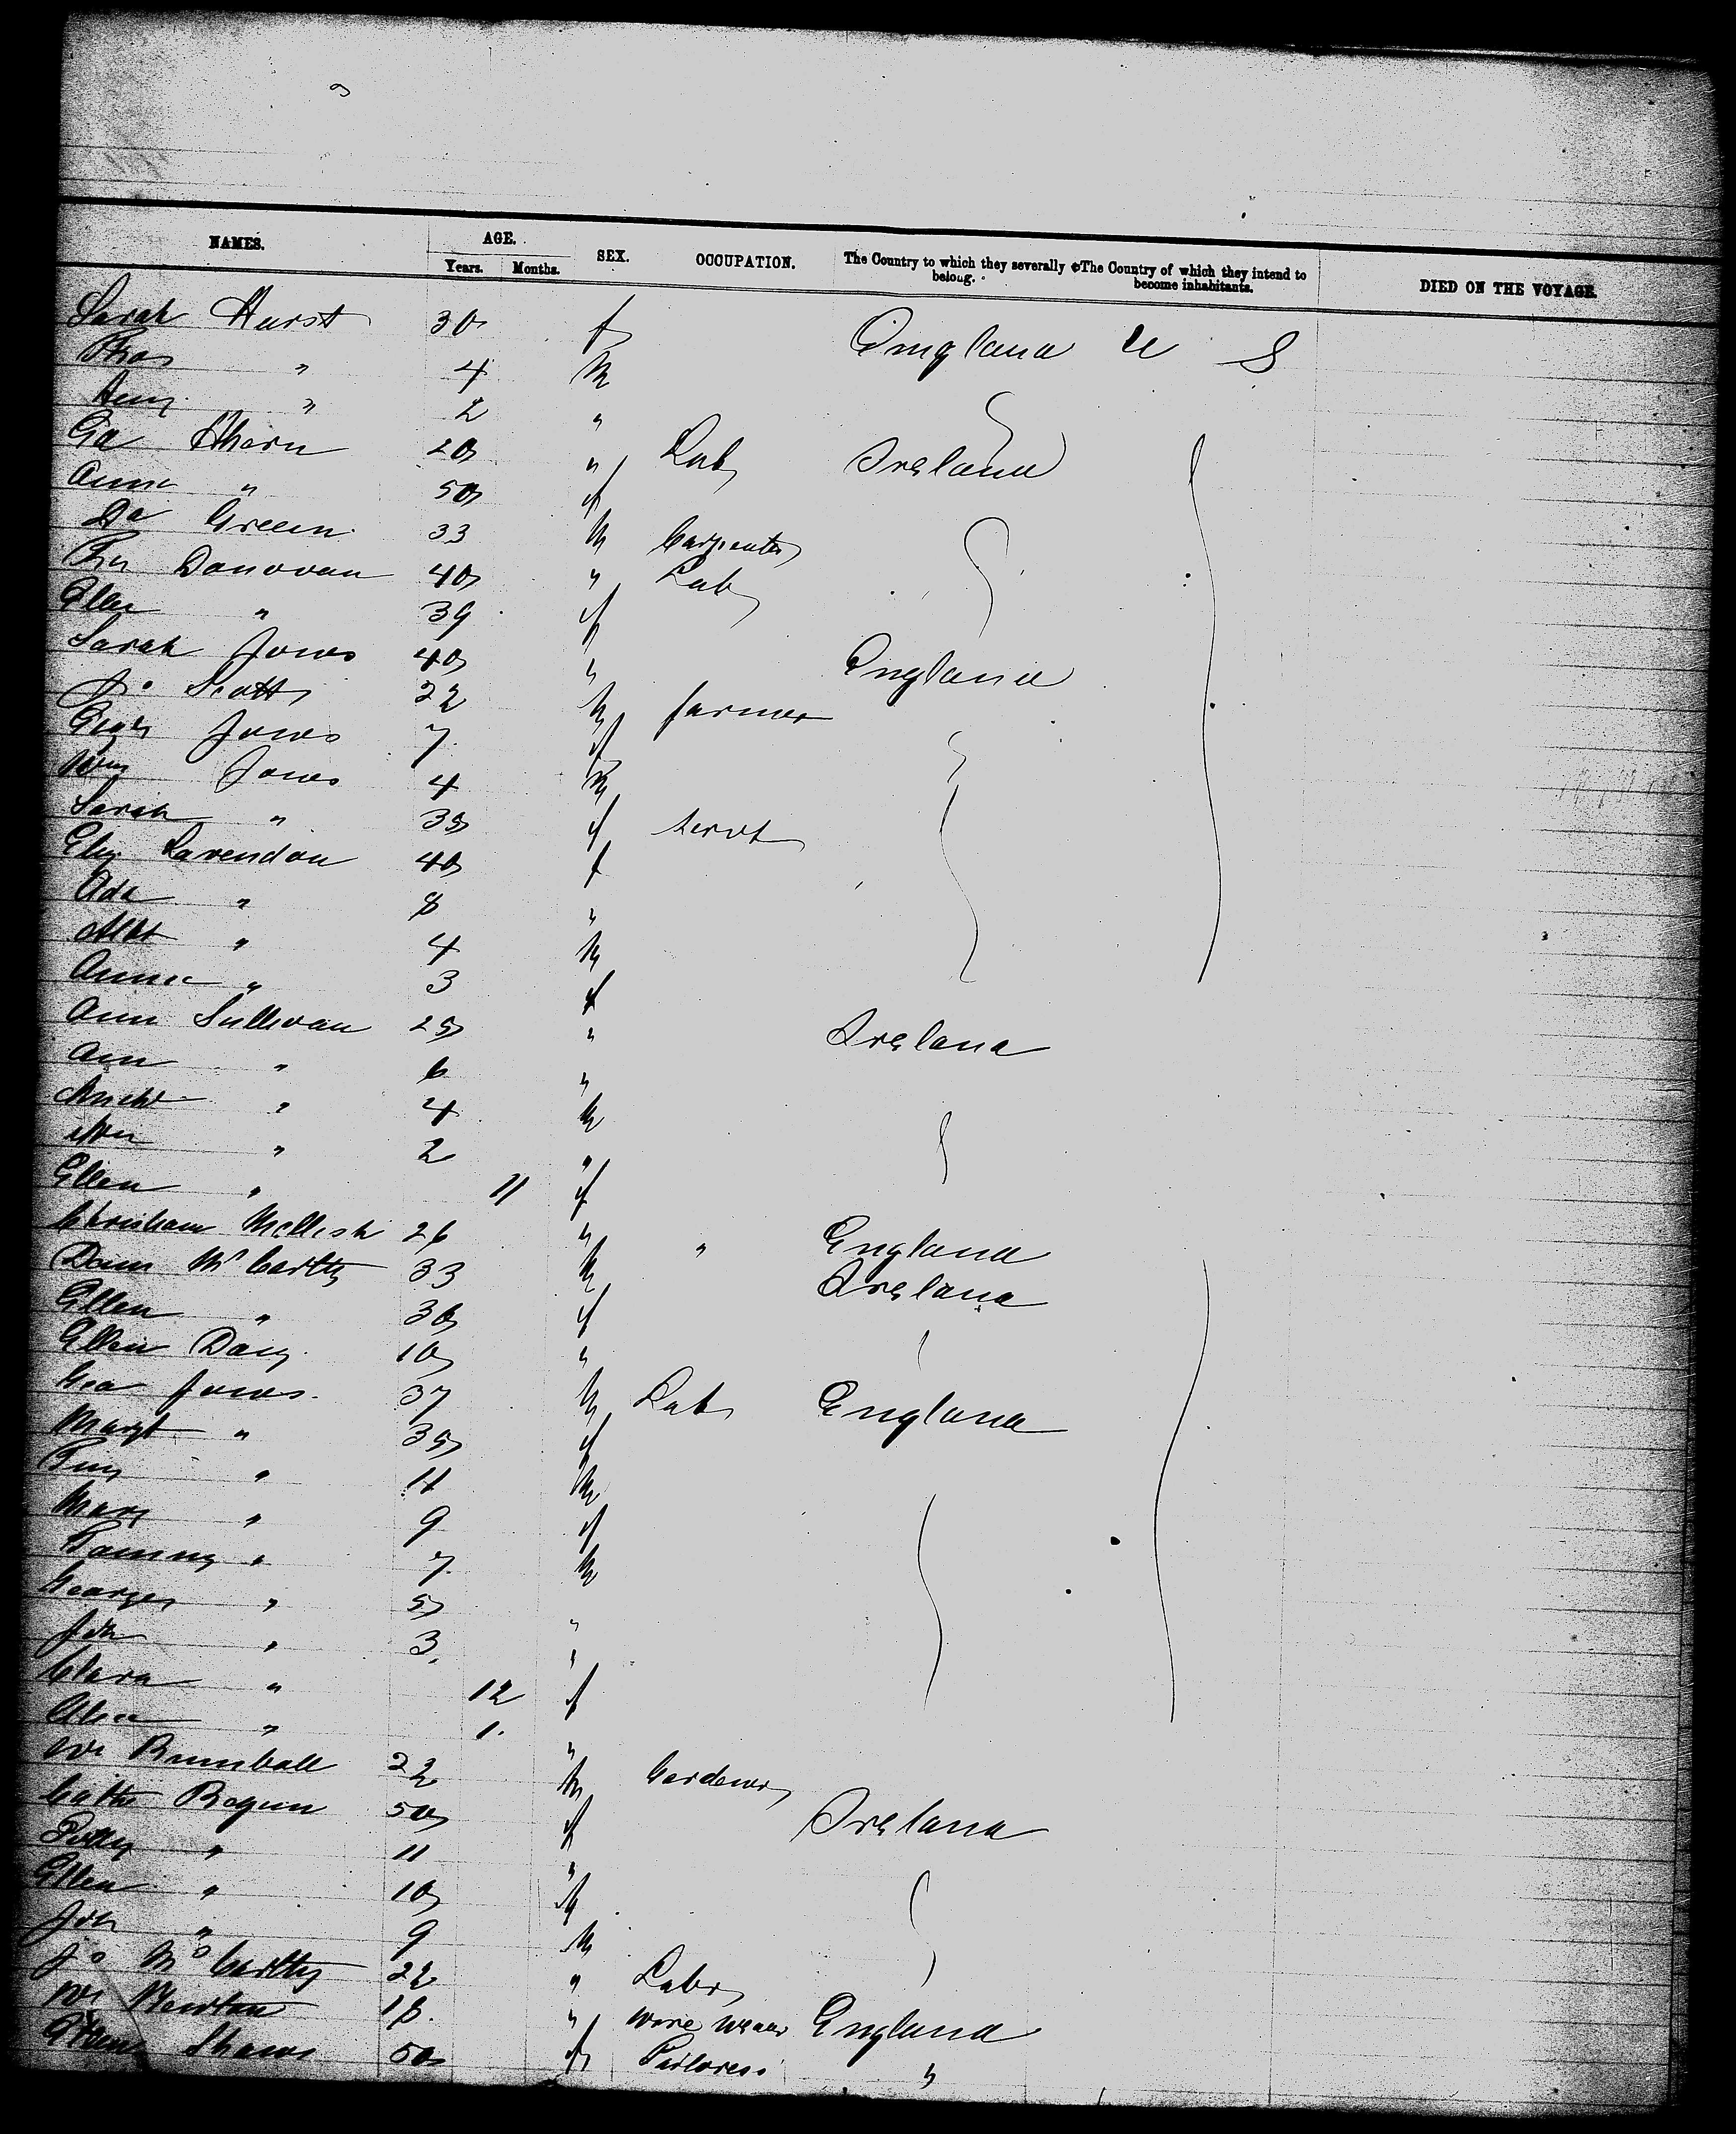 NAMES. AGE. SEX. OCCUPATION. The Country to which they severally belong. The Country of which they intend to become inhabitants. DIED ON THE VOYAGE.
Years. Months.
Sarah Hurst 30 f England U S
Thos " 4 M
" 2 "
Ahern 20 " Lab Ireland
Anne " 50 f
Da Green 33 M Carpenter
Donovan 40 " Lab
Ellen " 39 f
Sarah Jones 40 " England
Jo Scott 22 M farmer
Jones 7 f
Wm Jones 4 M
Sarah " 35 f Servt
Eliz Lavendon 40 f
Ada " 8 "
Albt " 4 M
Annie " 3 f
Ann Sullivan 25 " Ireland
Ann " 6 "
" 4 M
" 2 "
Ellen " 11 f
Mellish 26 " " England
McCarthy 33 M Ireland
Ellen " 30 f
Ellen 10 "
Geo Jones. 37 M Lab England
Margt " 35 f
" 11 M
Mary " 9 f
Tommy " 7 M
Georges " 5 "
Jon " 3 "
Clara " 12 f
Alice " 1 "
Wm Rumball 22 M Gardener
Cathe 50 f Ireland
Polly " 11 "
Ellen " 10 f
Jon " 9 M
Jo McCarthy 22 " Labr
Wm Newton 18 " Wire England
Shaws 50 f Tailoress "